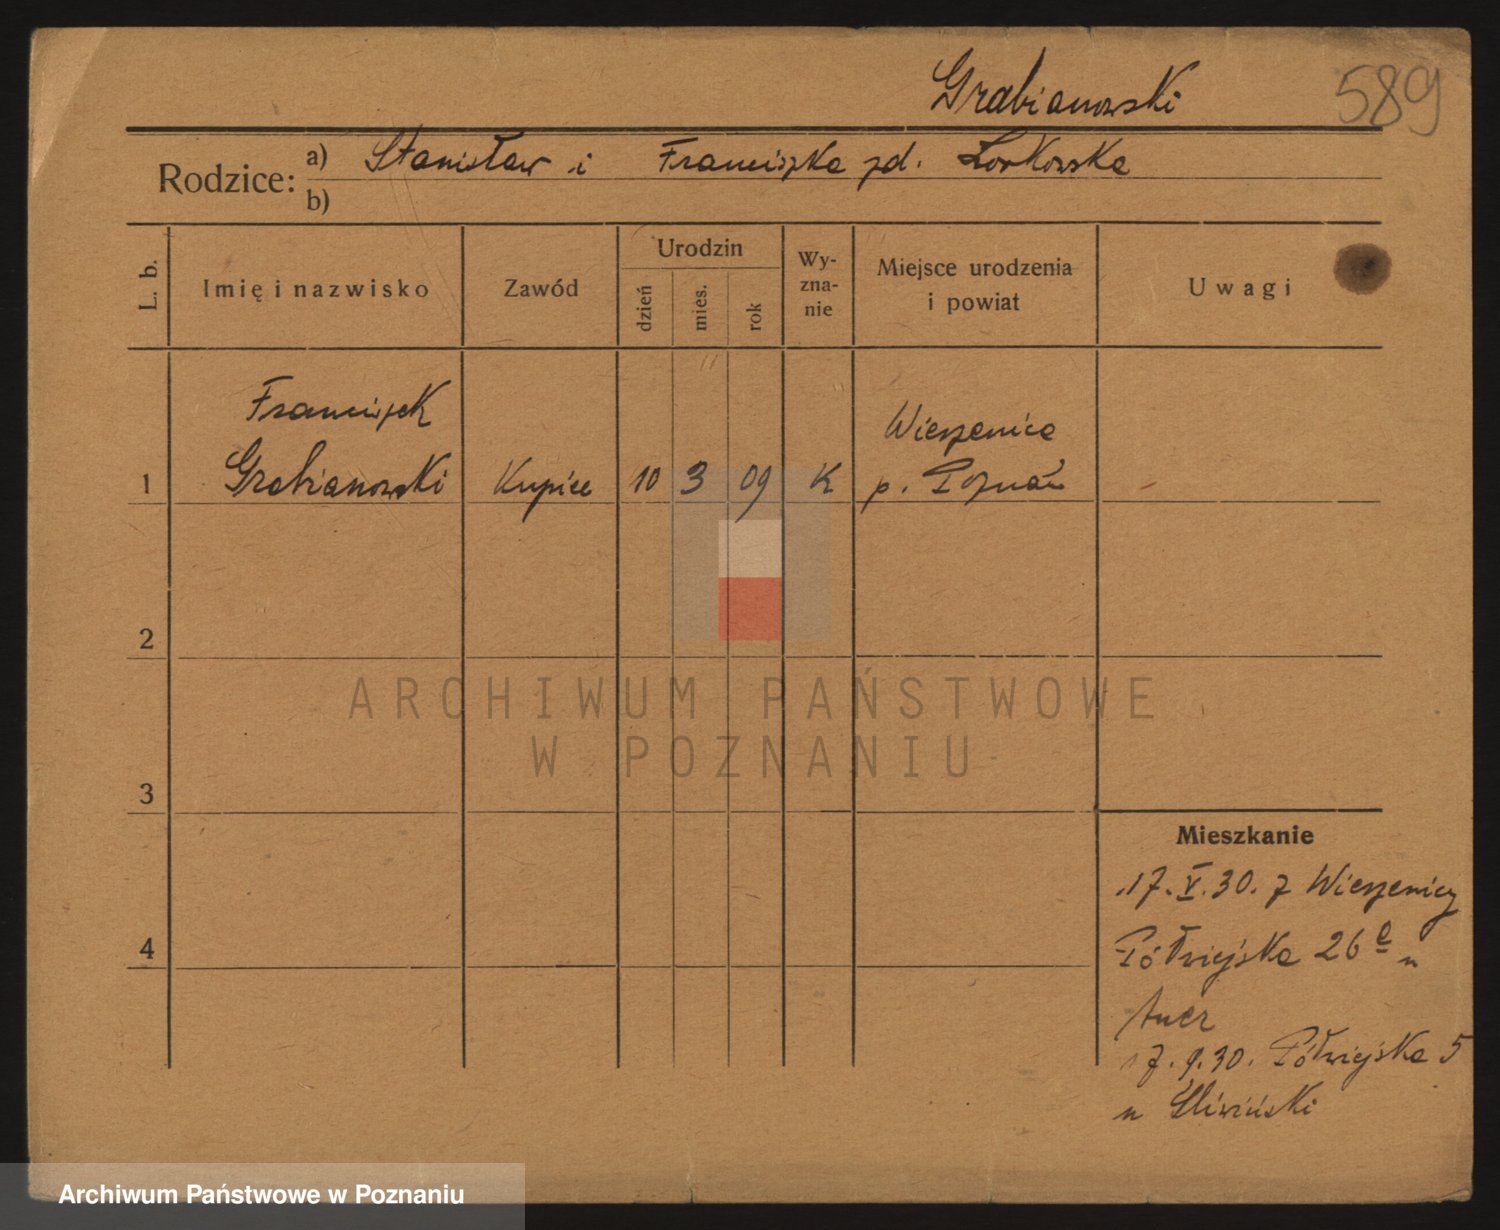 Grabianowski 589
Rodzice:
a) Stanisław i Franciszka zd. Lorkowska
b)
L. b.
Imię i nazwisko
Zawód
Urodzin
dzień
mies.
rok
Wy-
zna-
nie
Miejsce urodzenia
i powiat
Uwagi
Franciszek
Grabianowski
1
Kupiec
10
3
09
K
Wierzenica
p. Poznań
2
3
4
Mieszkanie
17.V.30. z Wierzenicy
Półwiejska 26 u
17.9.30. Półwiejska 5
u Śliwiński
ARCHIWUM PAŃSTWOWE
W POZNANIU
Archiwum Państwowe w Poznaniu